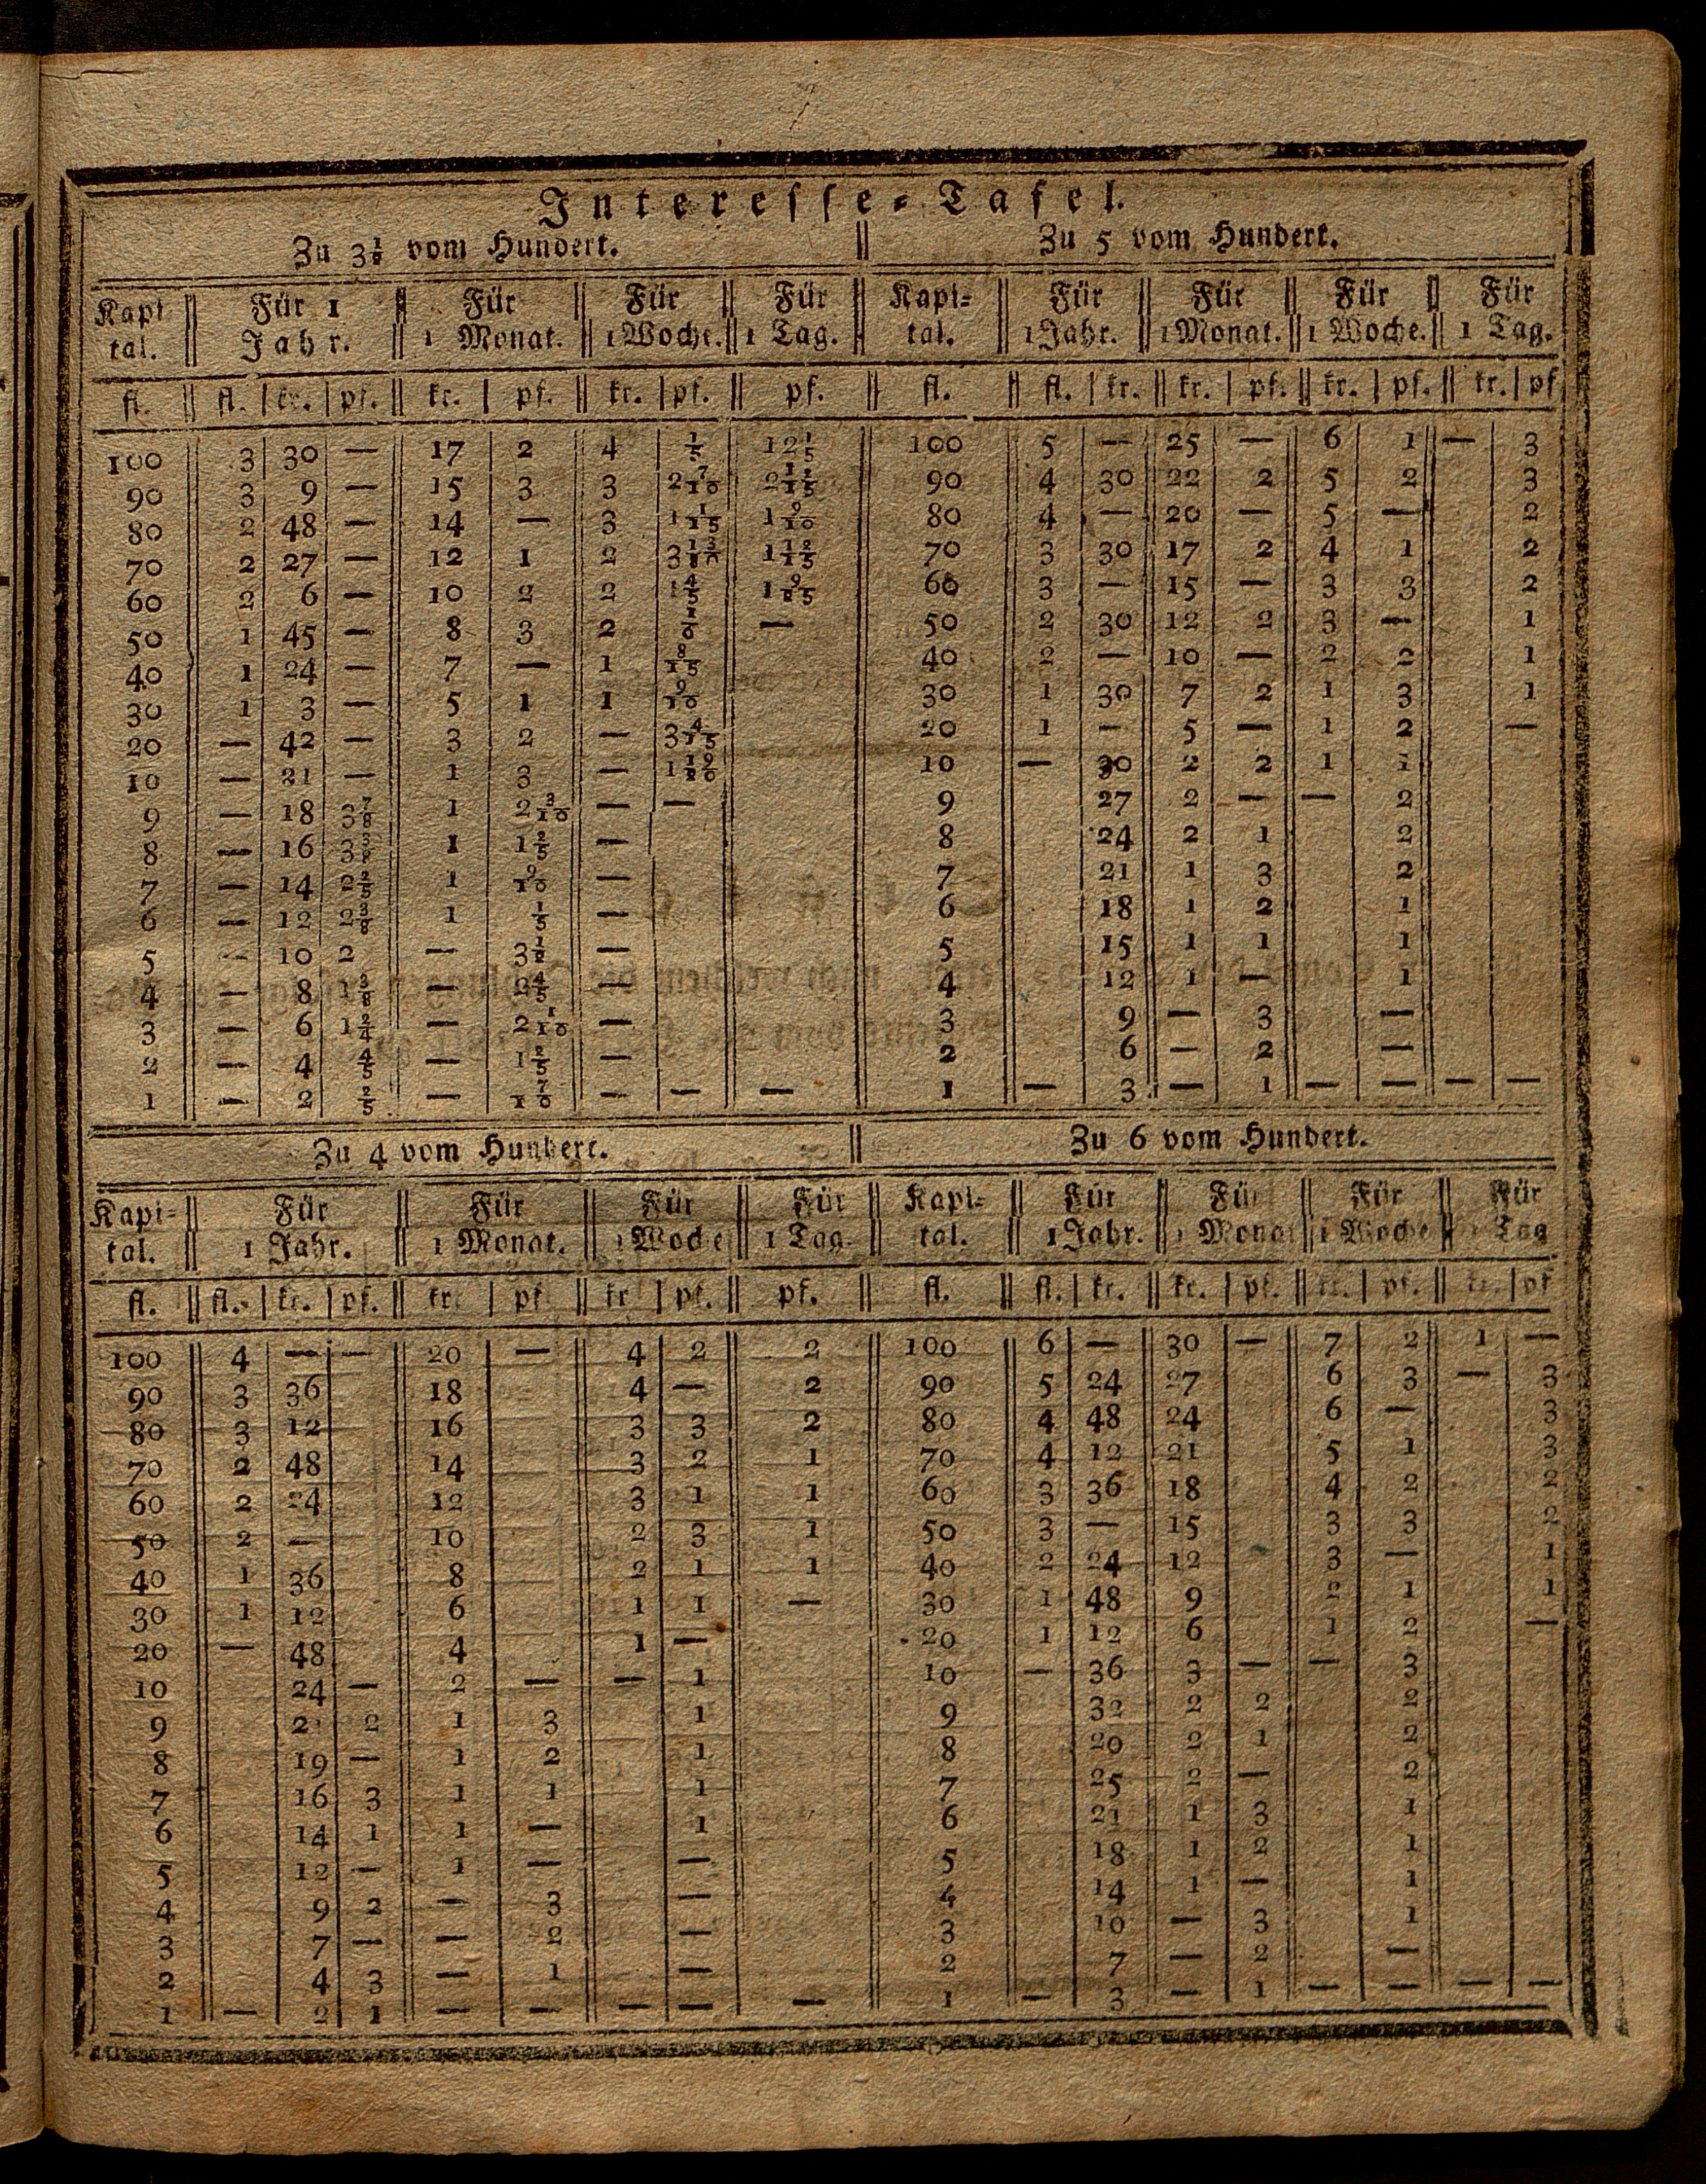 Interesse-Tafel.
Zu 3½ vom Hundert. || Zu 5 vom Hundert.
Kapi | Für 1 | Für | Für | Für | Kapi- | Für | Für | Für | Für
tal. | Jahr. | 1 Monat. | 1 Woche. | 1 Tag. | tal. | 1 Jahr. | 1 Monat. | 1 Woche. | 1 Tag.
fl. | fl. | kr. | pf. | kr. | pf. | kr. | pf. | pf. | fl. | fl. | kr. | kr. | pf. | kr. | pf. | kr. | pf
100 | 3 | 30 | — | 17 | 2 | 4 | ⅕ | 12⅕ | 100 | 5 | — | 25 | — | 6 | 1 | — | 3
90 | 3 | 9 | — | 15 | 3 | 3 | 2 7/10 | | 90 | 4 | 30 | 22 | 2 | 5 | 2 | | 3
80 | 2 | 48 | — | 14 | — | 3 | 1 1/15 | 1 9/10 | 80 | 4 | — | 20 | — | 5 | — | | 2
70 | 2 | 27 | — | 12 | 1 | 2 | | | 70 | 3 | 30 | 17 | 2 | 4 | 1 | | 2
60 | 2 | 6 | — | 10 | 2 | 2 | 1⅘ | | 60 | 3 | — | 15 | — | 3 | 3 | | 2
50 | 1 | 45 | — | 8 | 3 | 2 | | — | 50 | 2 | 30 | 12 | 2 | 3 | — | | 1
40 | 1 | 24 | — | 7 | — | 1 | 8/15 | | 40 | 2 | — | 10 | — | 2 | 2 | | 1
30 | 1 | 3 | — | 5 | 1 | 1 | 9/10 | | 30 | 1 | 30 | 7 | 2 | 1 | 3 | | 1
20 | — | 42 | — | 3 | 2 | — | 3 4/15 | | 20 | 1 | — | 5 | — | 1 | 2 | | —
10 | — | 21 | — | 1 | 3 | — | 1 19/20 | | 10 | — | 30 | 2 | 2 | 1 | 1
9 | — | 18 | 3⅞ | 1 | 2 3/10 | — | — | | 9 | | 27 | 2 | — | — | 2
8 | — | 16 | | 1 | 1⅖ | — | | | 8 | | 24 | 2 | 1 | | 2
7 | — | 14 | 2⅖ | 1 | 9/10 | — | | | 7 | | 21 | 1 | 3 | | 2
6 | — | 12 | 2⅜ | 1 | ⅕ | — | | | 6 | | 18 | 1 | 2 | | 1
5 | — | 10 | 2 | — | 3½ | — | | | 5 | | 15 | 1 | 1 | | 1
4 | — | 8 | 1⅜ | — | 2⅘ | — | | | 4 | | 12 | 1 | — | | 1
3 | — | 6 | 1 2/4 | — | 2 1/10 | — | | | 3 | | 9 | — | 3 | | —
2 | — | 4 | ⅘ | — | 1⅖ | — | | | 2 | | 6 | — | 2 | | —
1 | — | 2 | ⅖ | — | 7/10 | — | — | — | 1 | — | 3 | — | 1 | — | — | — | —
Zu 4 vom Hundert. || Zu 6 vom Hundert.
Kapi- | Für | Für | Für | Für | Kapi- | Für | Für | Für | Für
tal. | 1 Jahr. | 1 Monat. | 1 Woche | 1 Tag. | tal. | 1 Jahr. | 1 Monat | 1 Woche | 1 Tag
fl. | fl. | kr. | pf. | kr. | pf | kr | pf. | pf. | fl. | fl. | kr. | kr. | pf. | kr. | pf. | kr. | pf
100 | 4 | — | — | 20 | — | 4 | 2 | 2 | 100 | 6 | — | 30 | — | 7 | 2 | 1 | —
90 | 3 | 36 | | 18 | | 4 | — | 2 | 90 | 5 | 24 | 27 | | 6 | 3 | — | 3
80 | 3 | 12 | | 16 | | 3 | 3 | 2 | 80 | 4 | 48 | 24 | | 6 | — | | 3
70 | 2 | 48 | | 14 | | 3 | 2 | 1 | 70 | 4 | 12 | 21 | | 5 | 1 | | 3
60 | 2 | 24 | | 12 | | 3 | 1 | 1 | 60 | 3 | 36 | 18 | | 4 | 2 | | 2
50 | 2 | — | | 10 | | 2 | 3 | 1 | 50 | 3 | — | 15 | | 3 | 3 | | 2
40 | 1 | 36 | | 8 | | 2 | 1 | 1 | 40 | 2 | 24 | 12 | | 3 | — | | 1
30 | 1 | 12 | | 6 | | 1 | 1 | — | 30 | 1 | 48 | 9 | | 2 | 1 | | 1
20 | — | 48 | | 4 | | 1 | — | | 20 | 1 | 12 | 6 | | 1 | 2 | | —
10 | | 24 | — | 2 | — | — | 1 | | 10 | — | 36 | 3 | — | — | 3
9 | | 2 | 2 | 1 | 3 | | 1 | | 9 | | 32 | 2 | 2 | | 2
8 | | 19 | — | 1 | 2 | | 1 | | 8 | | 20 | 2 | 1 | | 2
7 | | 16 | 3 | 1 | 1 | | 1 | | 7 | | 25 | 2 | — | | 2
6 | | 14 | 1 | 1 | — | | 1 | | 6 | | 21 | 1 | 3 | | 1
5 | | 12 | — | 1 | — | | — | | 5 | | 18 | 1 | 2 | | 1
4 | | 9 | 2 | — | 3 | | — | | 4 | | 14 | 1 | — | | 1
3 | | 7 | — | — | 2 | | — | | 3 | | 10 | — | 3 | | 1
2 | | 4 | 3 | — | 1 | | — | | 2 | | 7 | — | 2 | | —
1 | — | 2 | 1 | — | — | — | — | — | 1 | — | 3 | — | 1 | — | — | — | —